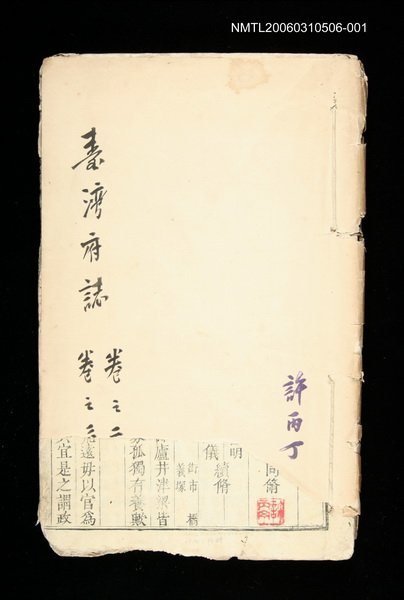 NMTL20060310506-001
臺灣府誌
卷之二
卷之
許丙丁
同脩
明
儀續脩
街市 橋
義塚
廬井津梁皆
孤獨有養歟
遠毋以官為
宜是之謂政